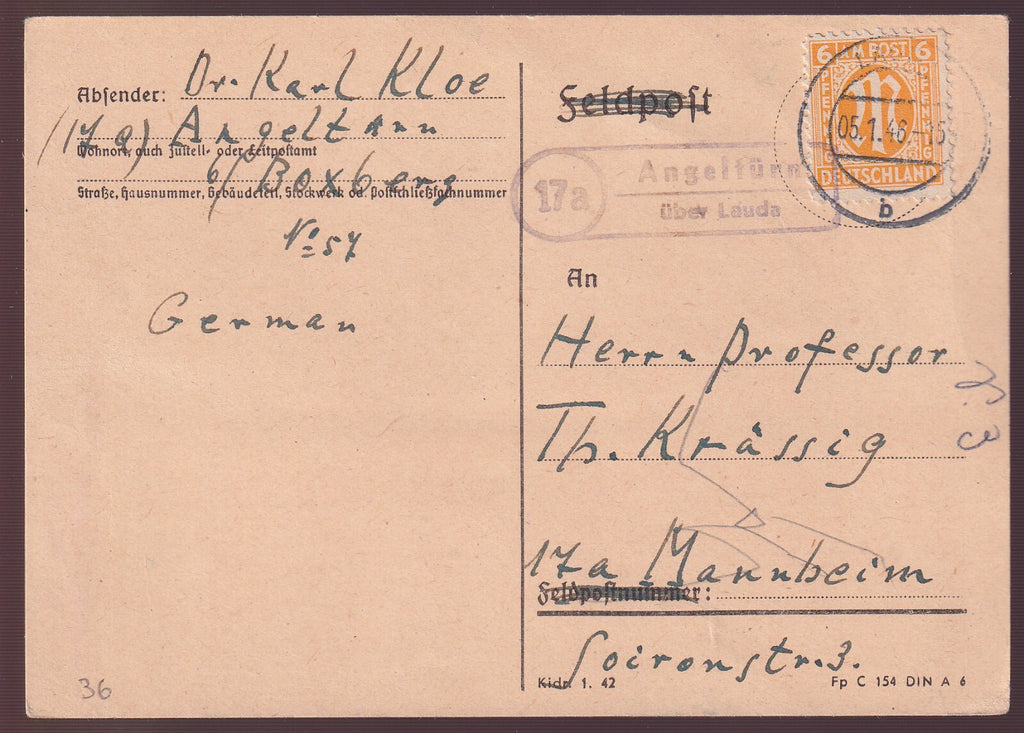 Absender: Dr. Karl Kloe
(17a) Angeltürn
Wohnort, auch Zustell- oder Leitpostamt
b/ Boxberg
Straße, Hausnummer, Gebäudeteil, Stockwerk od. Postschließfachnummer
No 57
German
36
Feldpost
6 AM POST 6
PFENNIG PFENNIG
M
DEUTSCHLAND
05.1.46-15
b
17a Angeltürn
über Lauda
An
Herrn Professor
Th. Krässig
17a Mannheim
Feldpostnummer:
Soironstr. 3.
Kidr. 1. 42
Fp C 154 DIN A 6